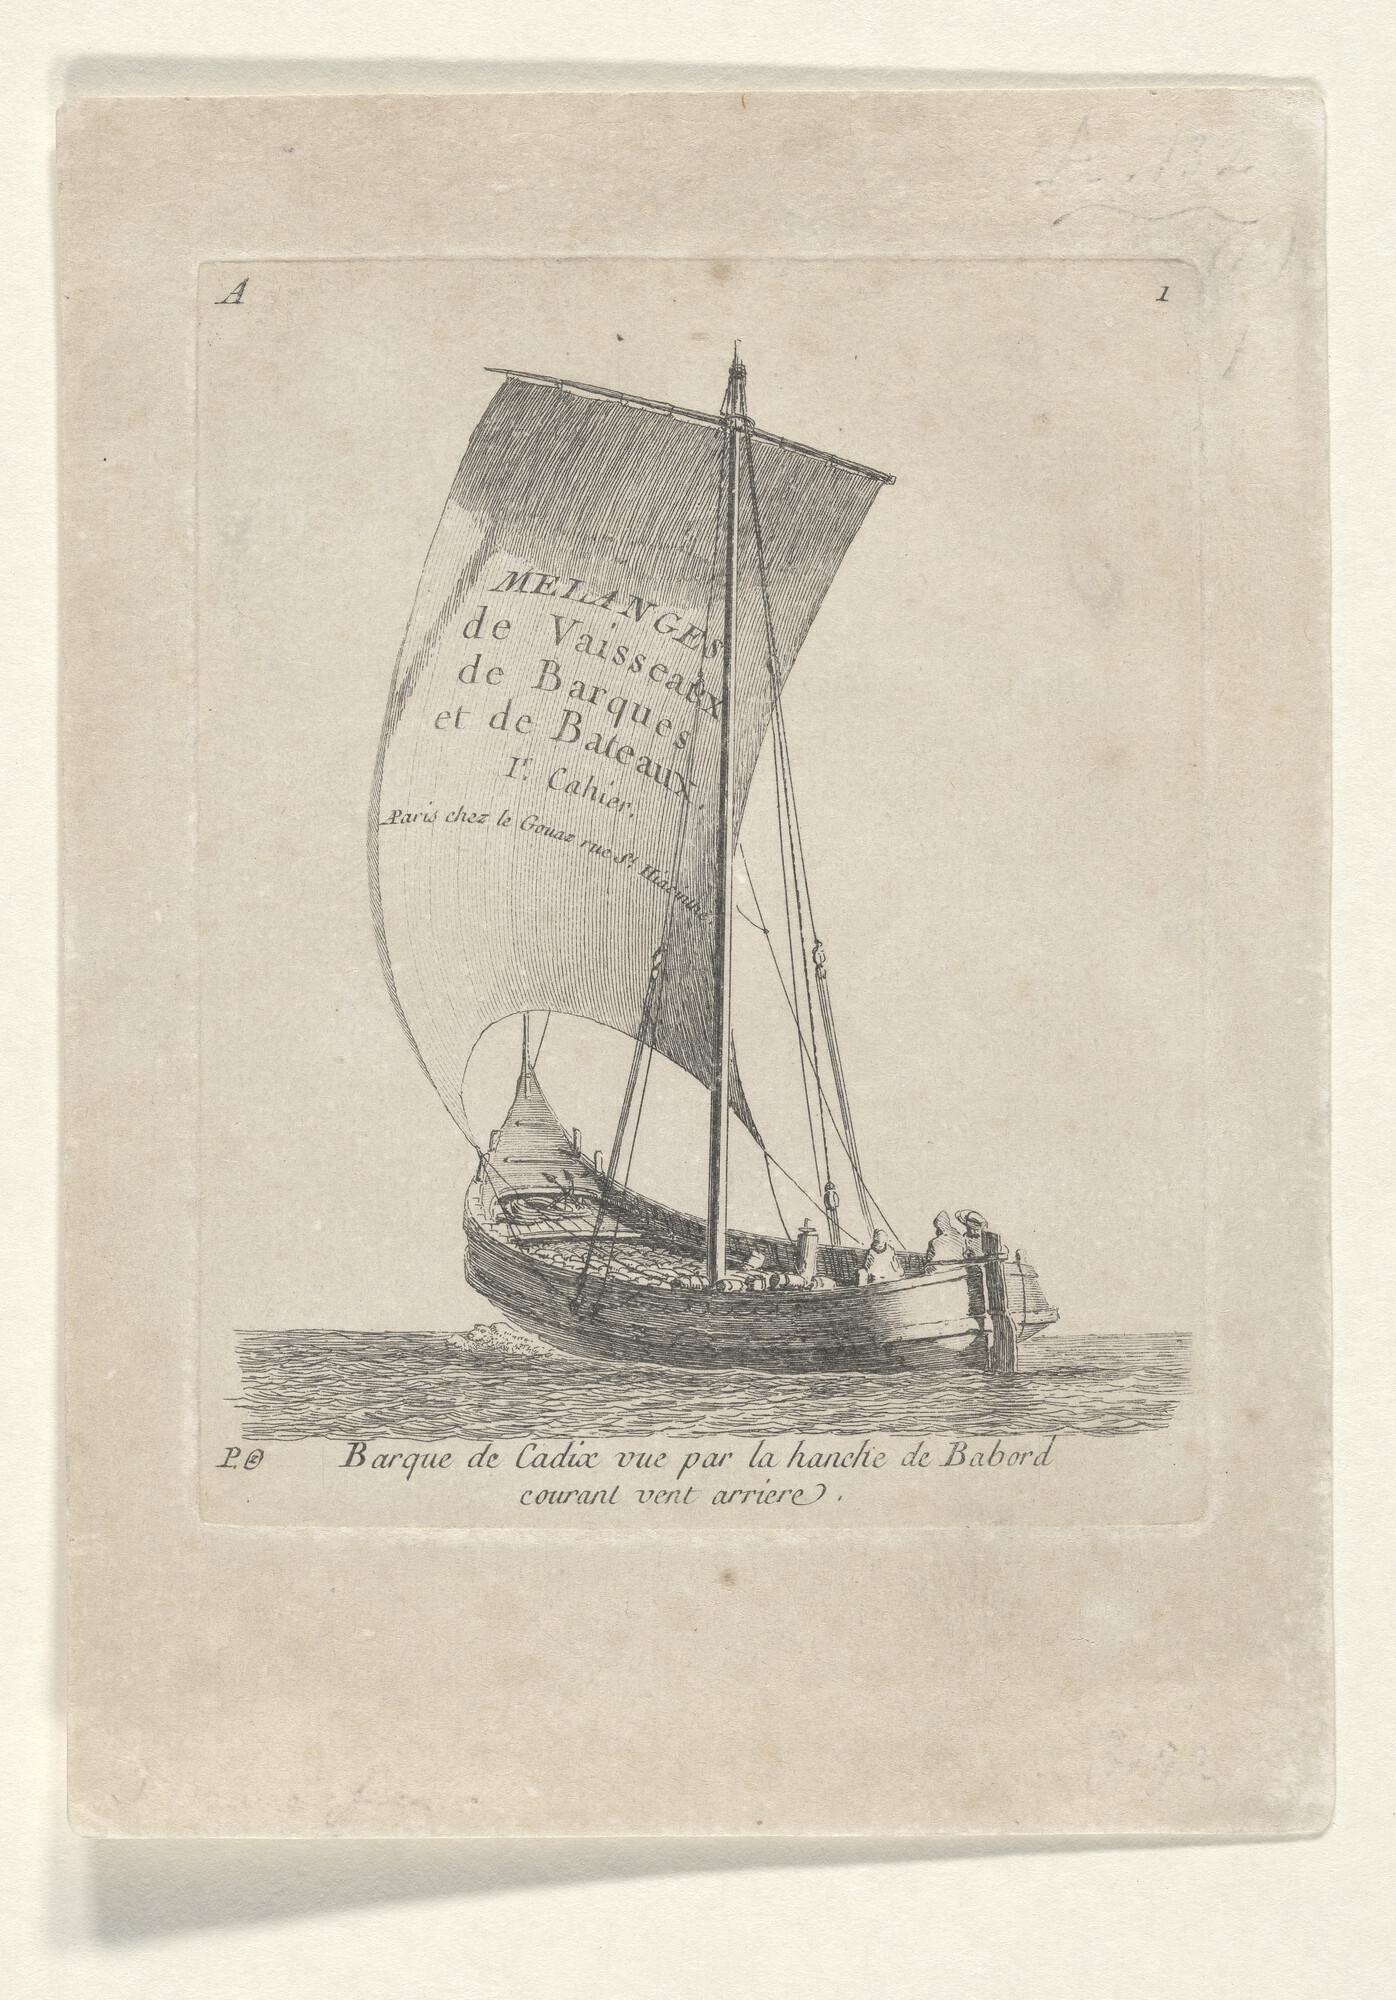 A
1
MELANGES
de Vaisseaux
de Barques
et de Bateaux.
Ir. Cahier.
AParis chez le Gouaz rue St. Hiacinthe.
P.
Barque de Cadix vue par la hanche de Babord
courant vent arriere.